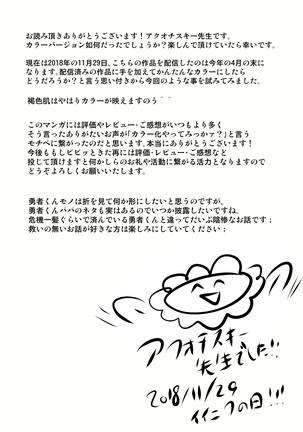 お読み頂きありがとうございます！アクオチスキー先生です。
カラーバージョン如何だったでしょうか？楽しんで頂けていたら幸いです。
現在は2018年の11月29日、こちらの作品を配信したのは今年の4月の末に
なります。配信済みの作品に手を加えてかんたんなカラーにしたら
どうだろうか？と言う思い付きから今回のような事を試みてみました。
褐色肌はやはりカラーが映えますのう＾＾
このマンガには評価やレビュー・ご感想がいつもより多く
そう言ったありがたいお声が「カラー化やってみっか？」と言う
モチベに繋がったのだと思います。本当にありがとうございます！
今後ももしビビッときた再には評価・レビュー・ご感想など
投じて頂けますと何かしらのお礼や活動に繋がる活力となりますので
どうぞよろしくお願いいたします。
勇者くんモノは折を見て何か形にしたいと思うのですが、
勇者くんパパのネタも実はあるのでいつか披露したいですね。
危機一髪ぐらいで済んでいる勇者くんと違ってだいぶ陰惨なお話です；
救いの無いお話が好きな方は楽しみにしていてください；
アクオチスキー
先生でした!!
2018/11/29
イイニクの日!!!